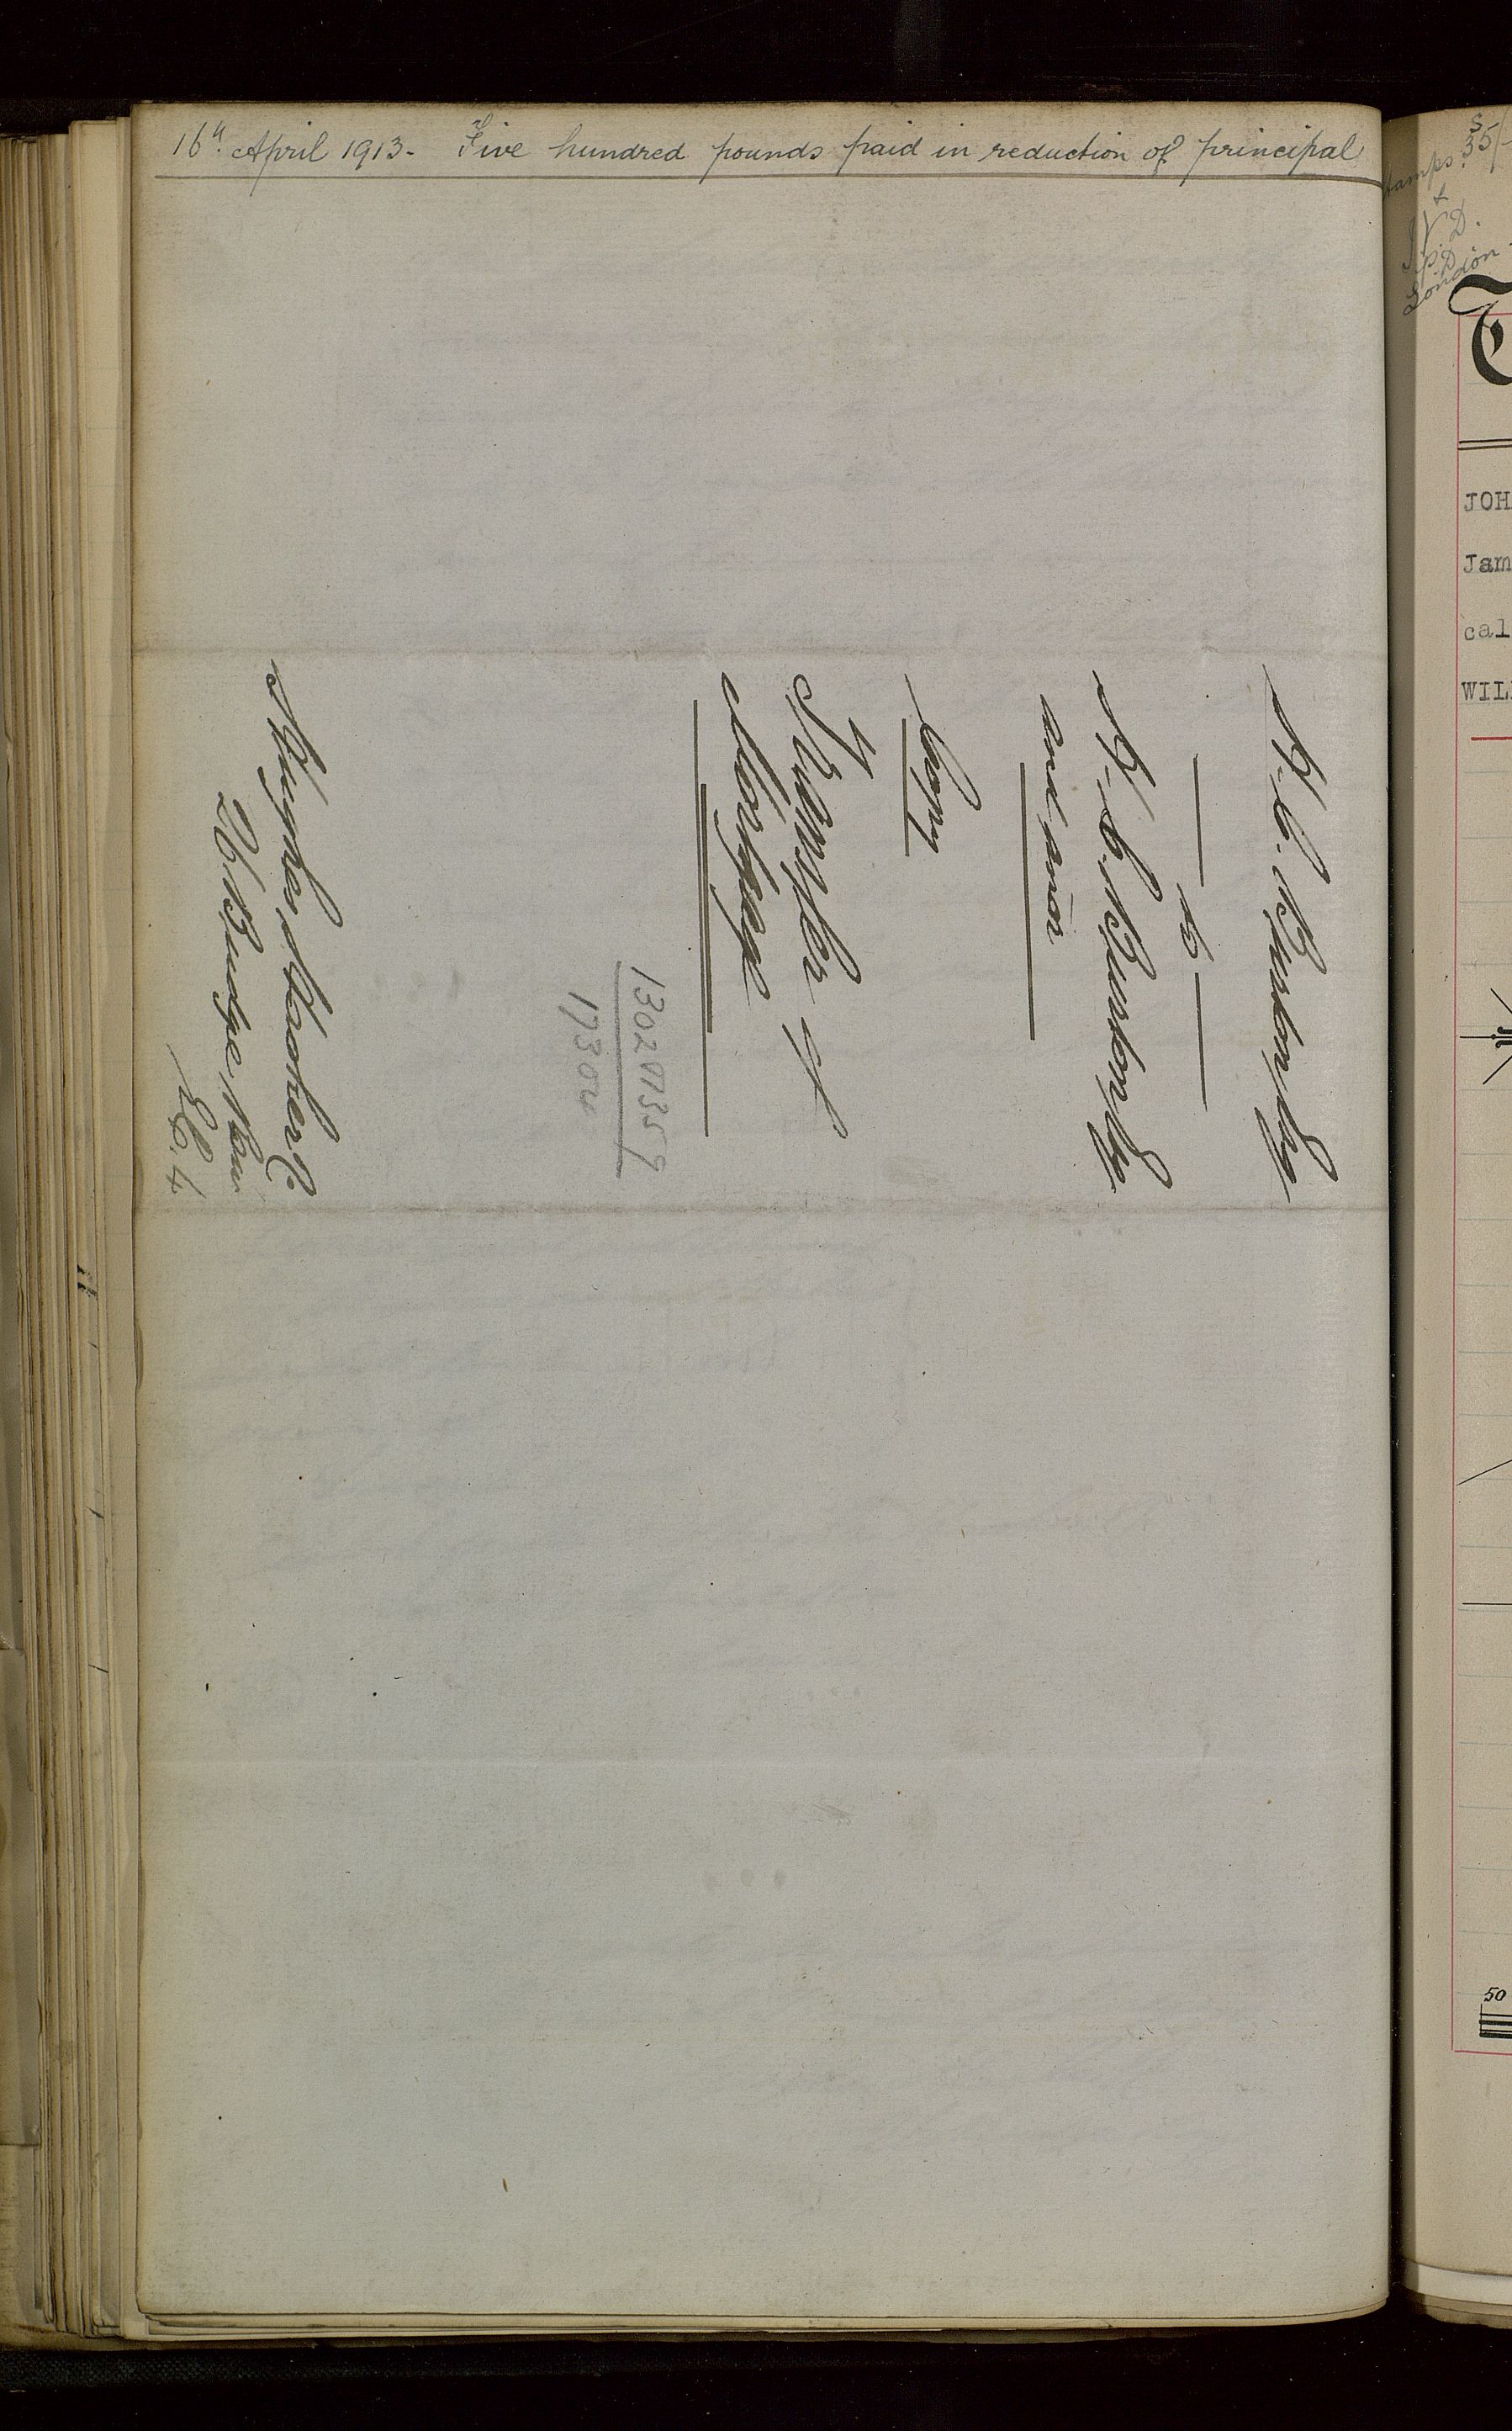 16th April 1913 - Five hundred pounds paid in reduction of principal
H. C. Burton Esq
to
H. C. Burton Esq
and anor
Copy
Transfer of
Mortgage
1302
1730
Hughes
26 Budge Row
E.C. 4
35/-
London
JOH
Jam
cal
WIL
50